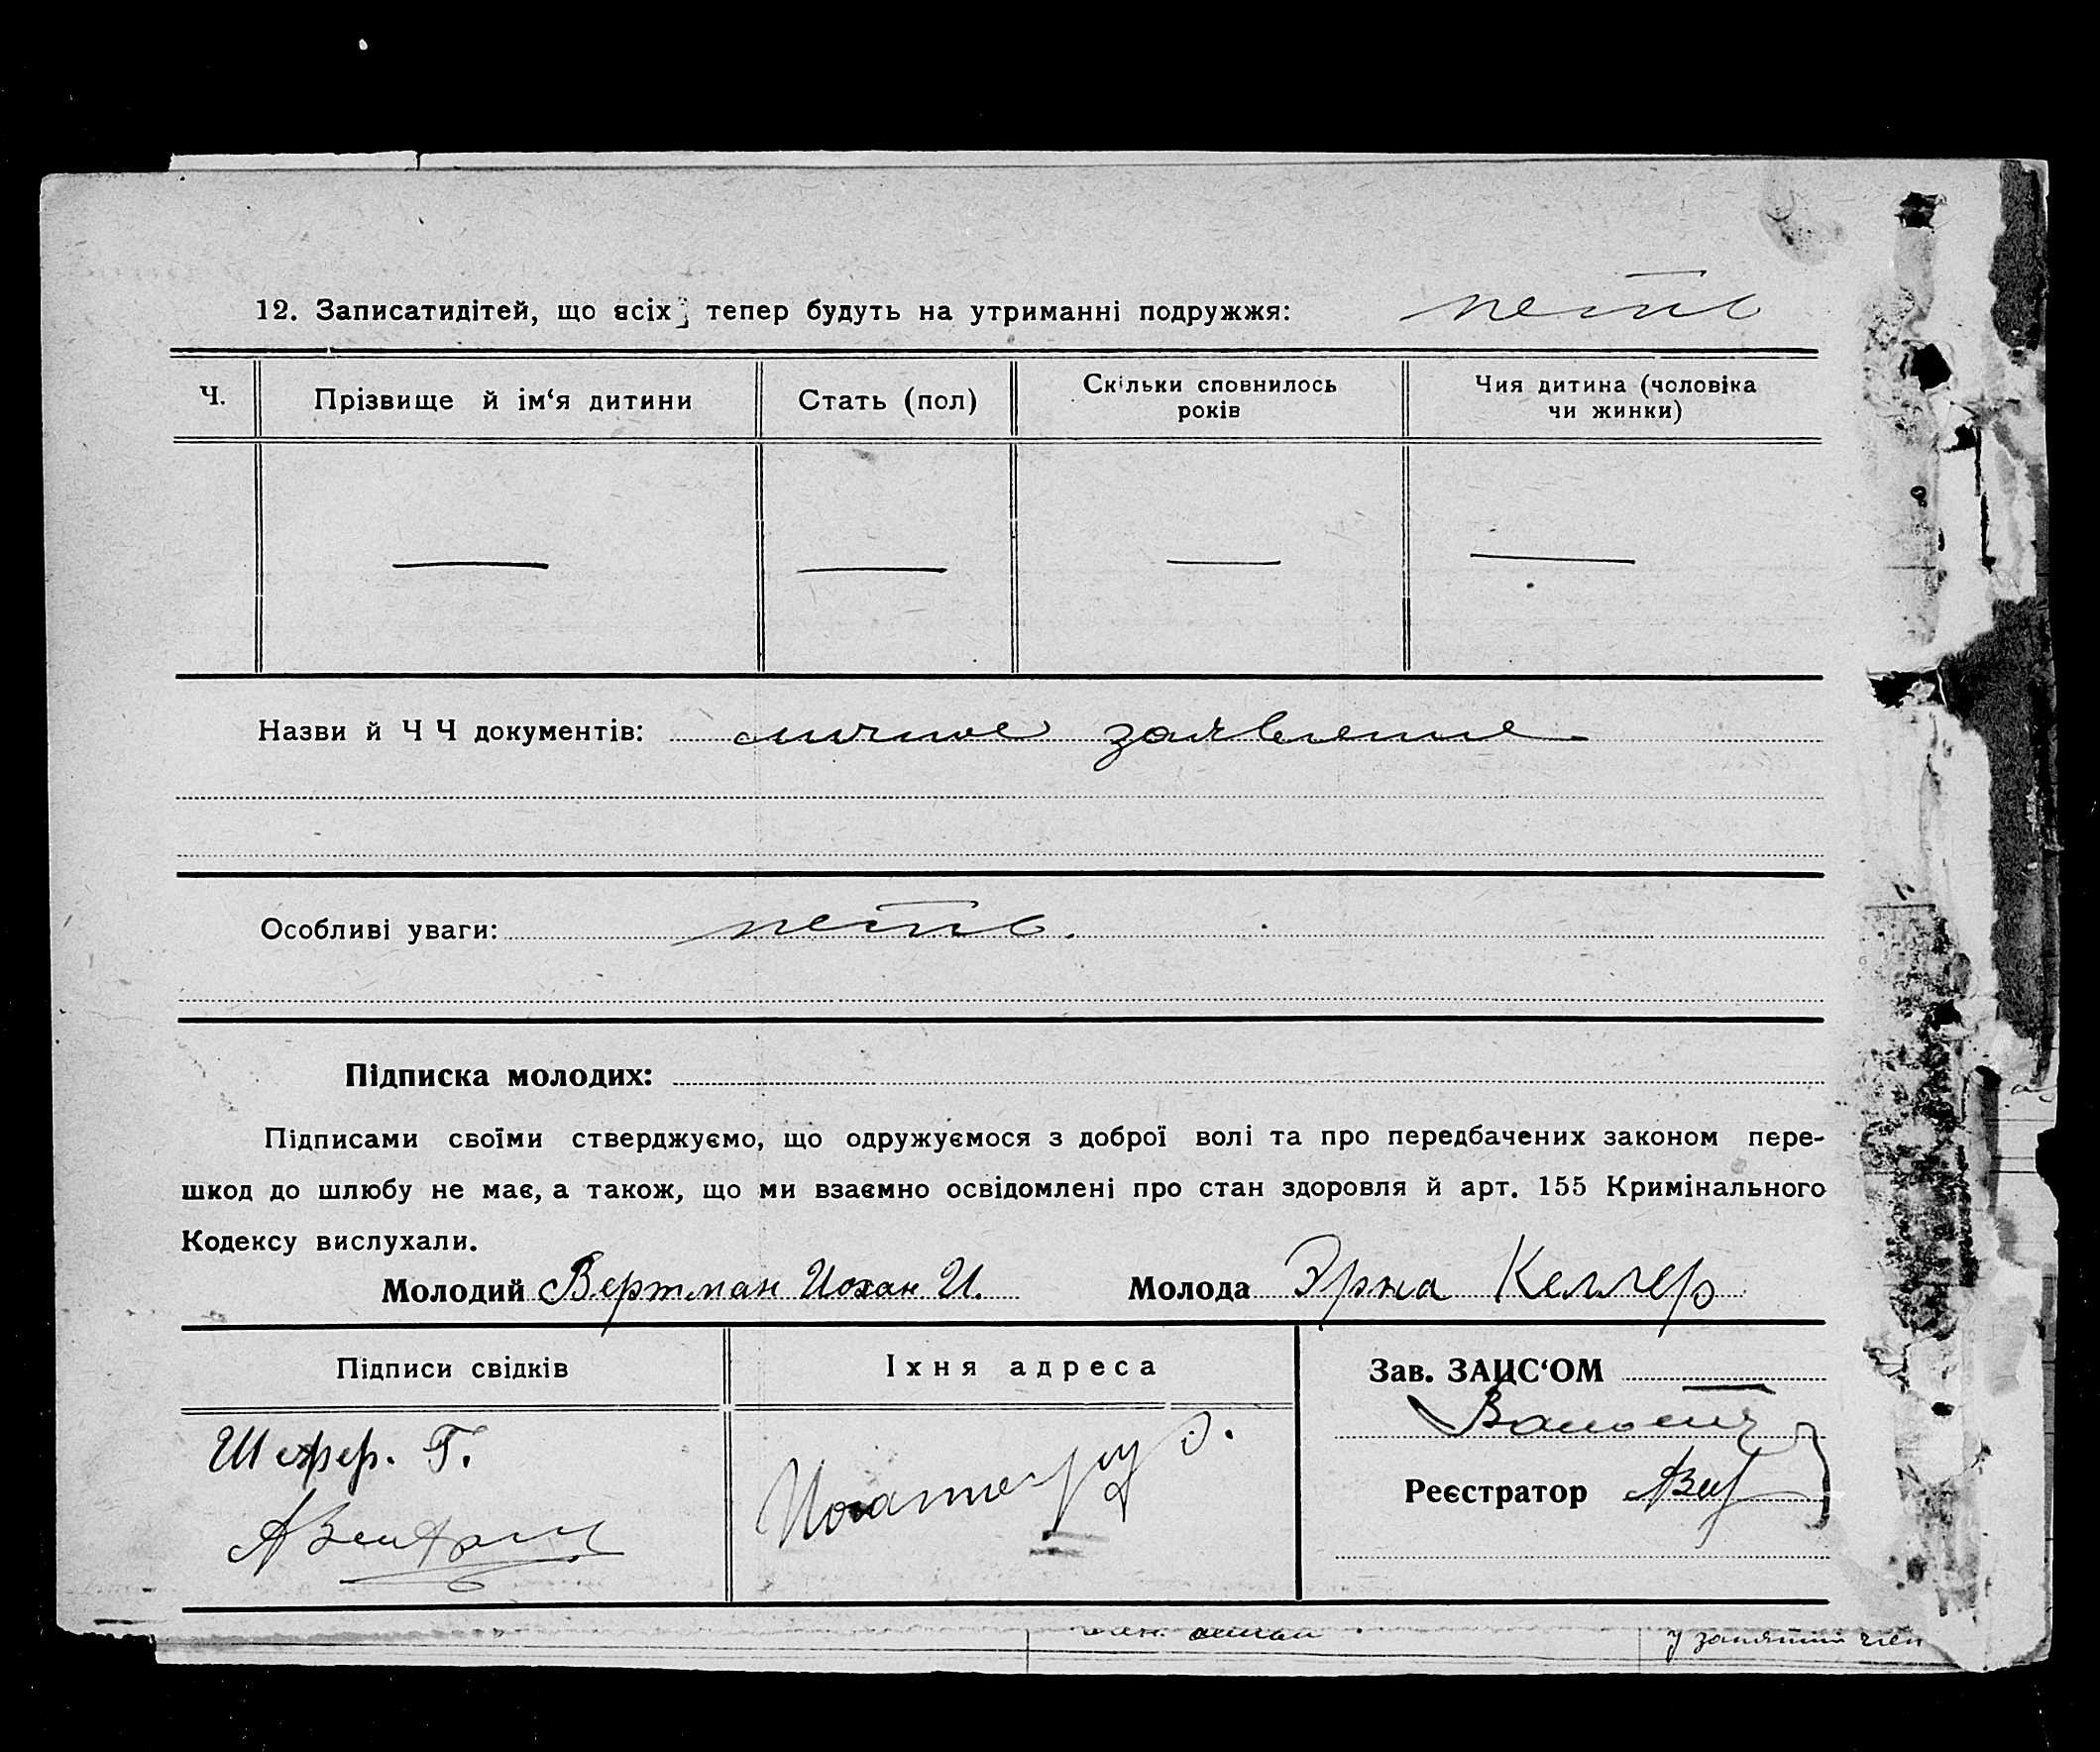 12. Записатидітей, що всіх тепер будуть на утриманні подружжя: нетъ
Ч. Прізвище й ім‘я дитини Стать (пол) Скільки сповнилось років Чия дитина (чоловіка чи жинки)
— — — —
Назви й Ч Ч документів: личное заявление
Особливі уваги: нетъ.
Підписка молодих:
Підписами своїми стверджуємо, що одружуємося з доброї волі та про передбачених законом пере-
шкод до шлюбу не має, а також, що ми взаємно освідомлені про стан здоровля й арт. 155 Кримінального
Кодексу вислухали.
Молодий Вертман Иохан И. Молода Эрна Келлер
Підписи свідків Їхня адреса Зав. ЗАЦС‘ОМ
Шефер. Г.
Реєстратор